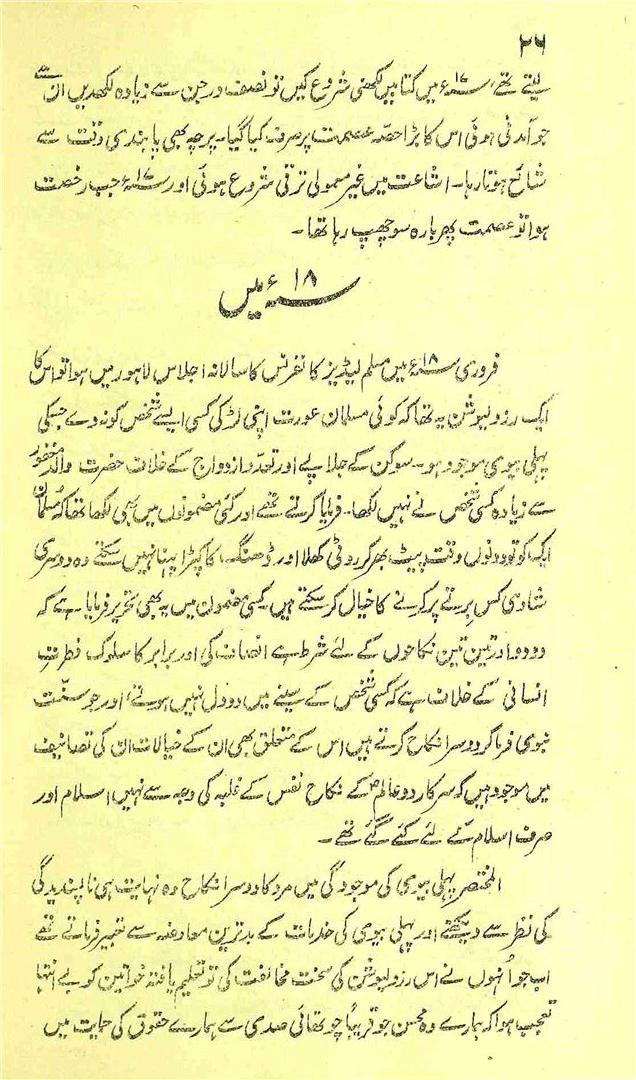 ۲۶
لیتے تھے، ۱۶ء میں کتابیں لکھنی شروع کیں تو نصف درجن سے زیادہ لکھدیں ان سے
جو آمدنی ہوئی اس کا بڑا حصہ عصمت پر صرف کیا گیا۔ پرچہ بھی پابندی وقت سے
شائع ہوتا رہا۔ اشاعت میں غیر معمولی ترقی شروع ہوئی اور ۱۷ء جب رخصت
ہوا تو عصمت پھر بارہ سو چھپ رہا تھا۔
۱۸ء میں
فروری ۱۸ء میں مسلم لیڈیز کانفرنس کا سالانہ اجلاس لاہور میں ہوا تو اس کا
ایک رزولیوشن یہ تھا کہ کوئی مسلمان عورت اپنی لڑکی کسی ایسے شخص کو نہ دے جسکی
پہلی بیوی موجود ہو۔ سوکن کے جلاپے اور تعدد ازدواج کے خلاف حضرت والد مغفور
سے زیادہ کسی شخص نے نہیں لکھا۔ فرمایا کرتے تھے اور کئی مضمونوں میں بھی لکھا تھا کہ مسلمان
ایک کو تو دونوں وقت پیٹ بھر کر روٹی کھلا اور ڈھنگ کا کپڑا پہنا نہیں سکتے وہ دوسری
شادی کس برتے پر کرنے کا خیال کر سکتے ہیں۔ کسی مضمون میں یہ بھی تحریر فرمایا ہے کہ
دو دو اور تین تین نکاحوں کے لئے شرط ہے انصاف کی اور برابر کا سلوک فطرت
انسانی کے خلاف ہے کہ کسی شخص کے سینے میں دو دل نہیں ہوتے، اور جو سنّت
نبوی فرما کر دوسرا نکاح کرتے ہیں اس کے متعلق بھی ان کے خیالات ان کی تصانیف
میں موجود ہیں کہ سرکار دو عالمؐ کے نکاح نفس کے غلبہ کی وجہ سے نہیں اسلام اور
صرف اسلام کے لئے کئے گئے تھے۔
المختصر پہلی بیوی کی موجودگی میں مرد کا دوسرا نکاح وہ نہایت ہی ناپسندیدگی
کی نظر سے دیکھتے اور پہلی بیوی کی خدمات کے بدترین معاوضہ سے تعبیر فرماتے تھے
اب جو اُنہوں نے اس رزولیوشن کی سخت مخالفت کی تو تعلیم یافتہ خواتین کو بے انتہا
تعجب ہوا کہ ہمارے وہ محسن جو قریباً چوتھائی صدی سے ہمارے حقوق کی حمایت میں